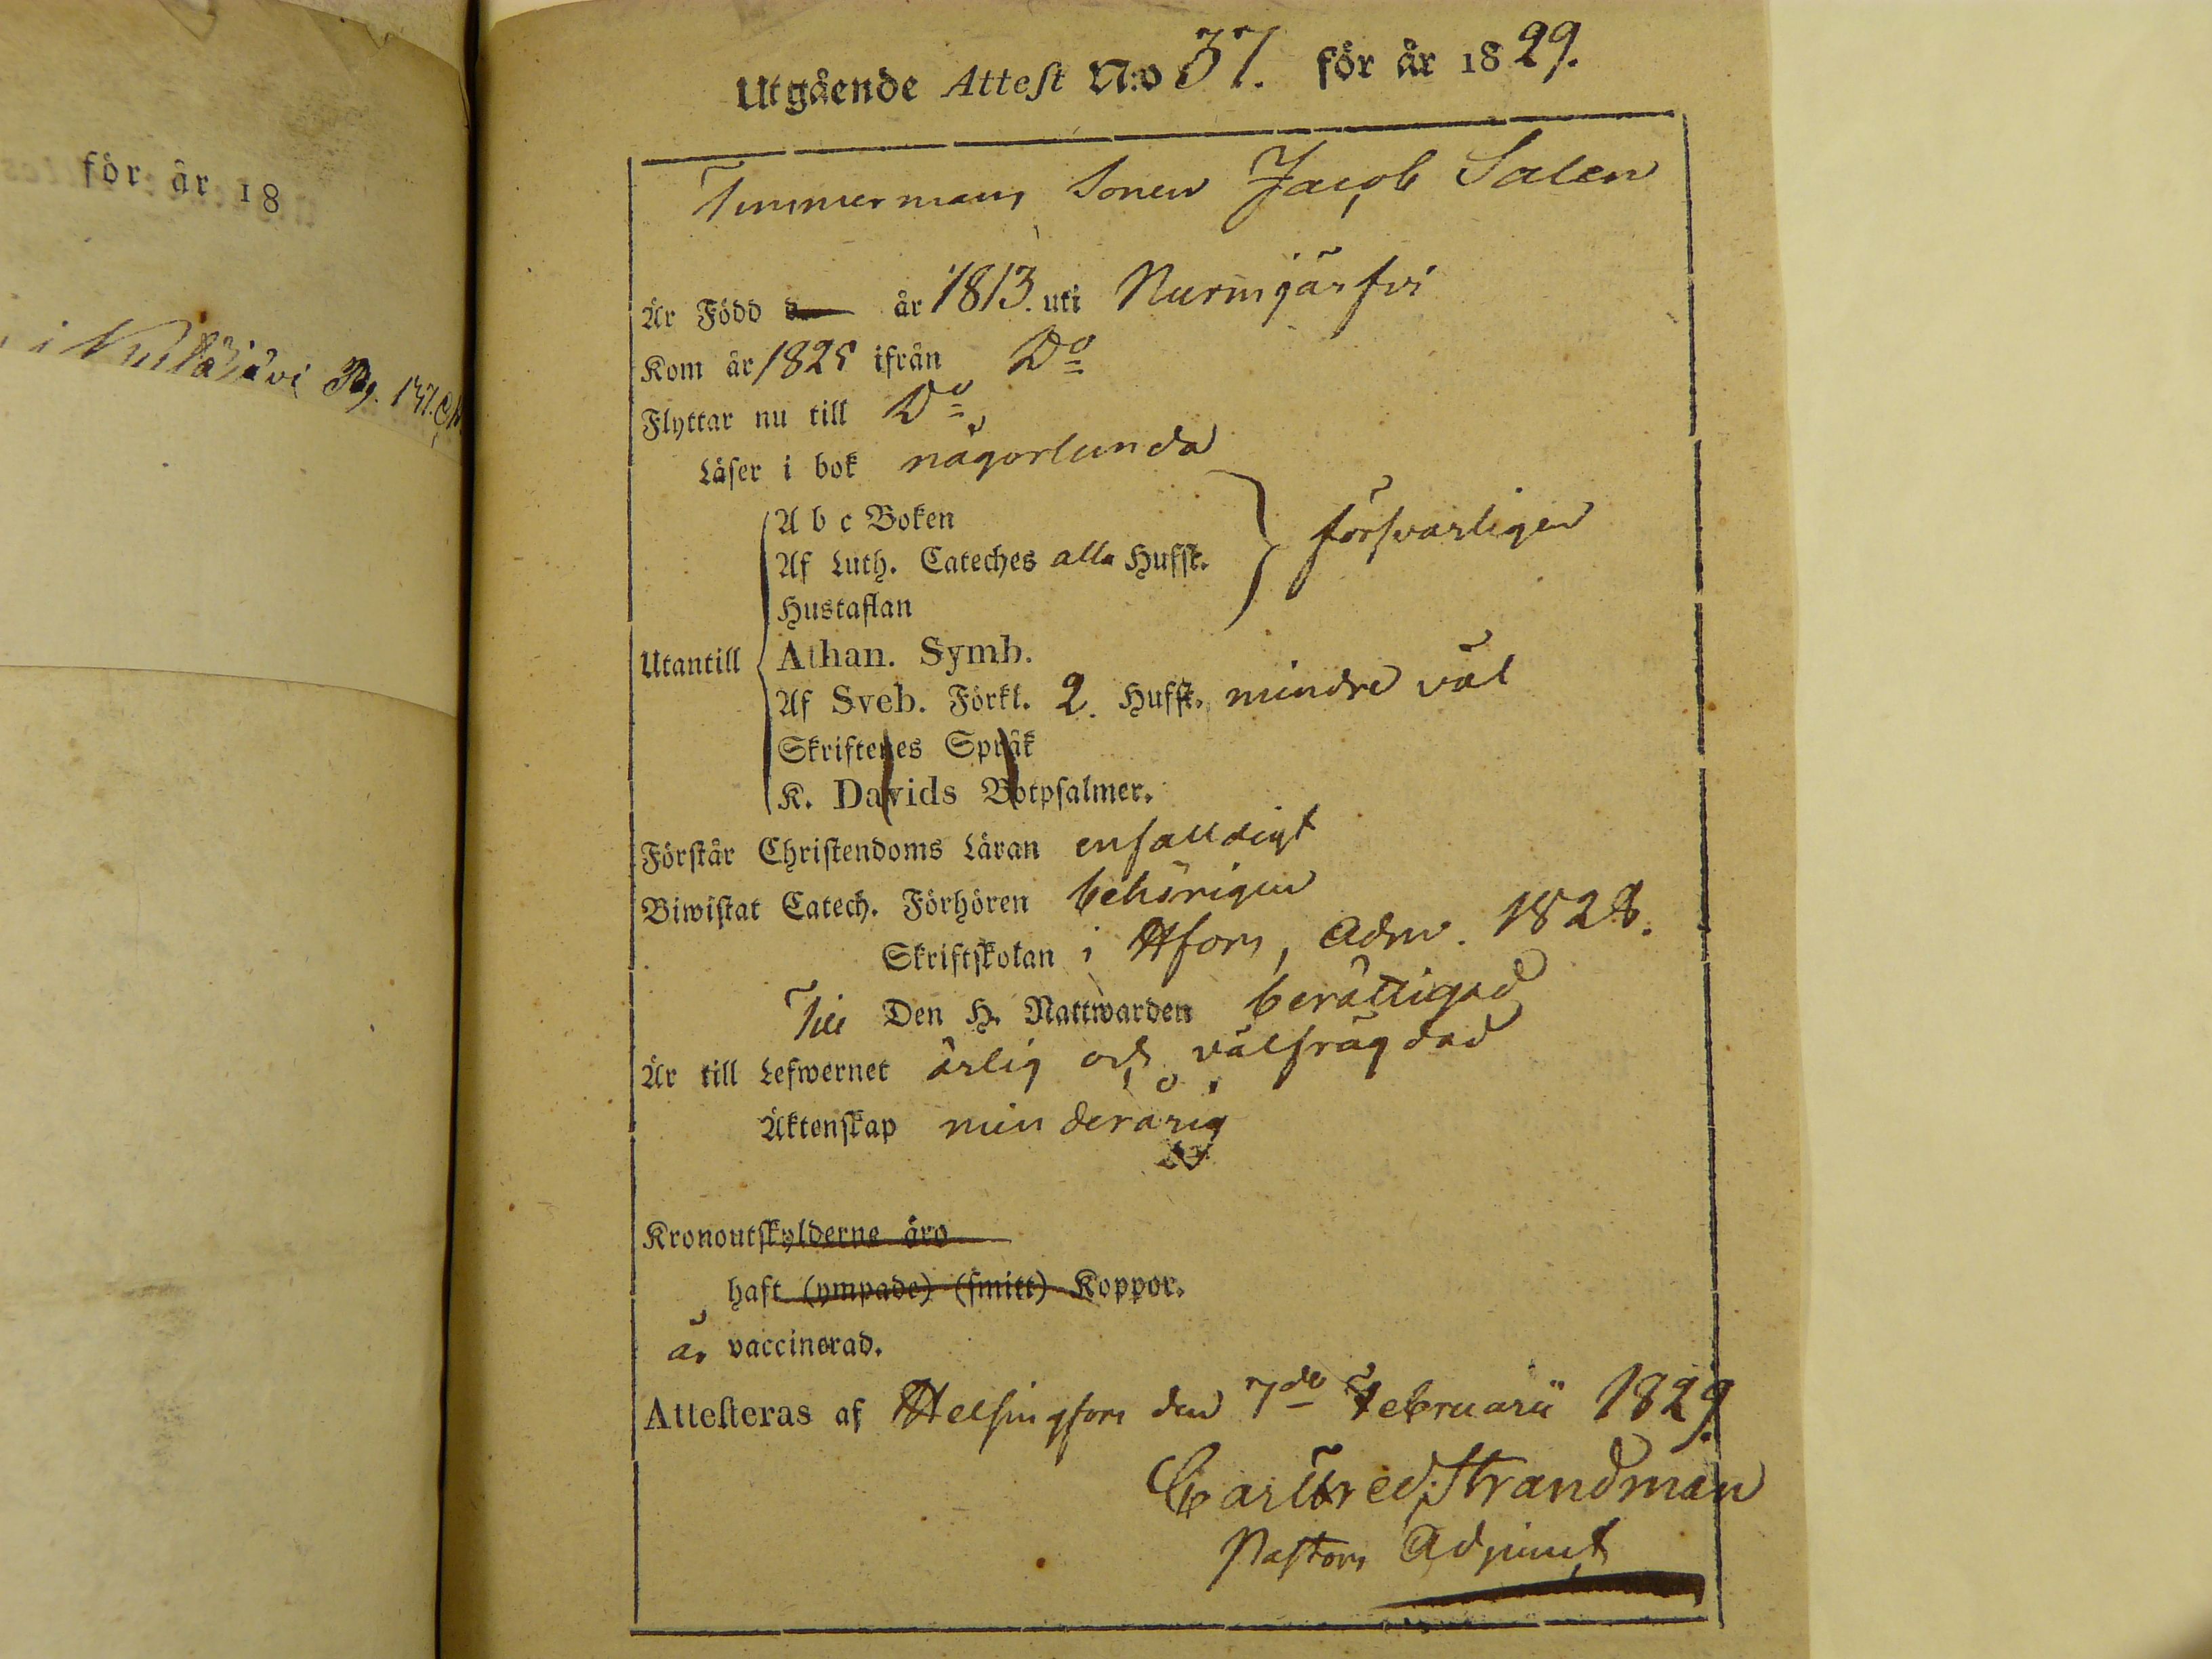 för år 18
i
Pag. 137.
Utgående Attest N:o 37. för år 1829.
Timmermans Sonen Jacob Salen
Är Född den år 1813. uti Nurmijärfvi
Kom år 1825 ifrån Do
Flyttar nu till Do
Läser i bok någorlunda
A b c Boken
Af Luth. Cateches alla Hufst. försvarligen
Hustaflan
Utantill Athan. Symb.
Af Sveb. Förkl. 2. Hufst. mindre väl
Skriftenes Språk
K. Davids Botpsalmer.
Förstår Christendoms Läran enfalldigt
Biwistat Catech. Förhören behörigen
Skriftskolan i Hfors, Adm. 1828.
Till Den H. Nattwarden berättigad
Är till Lefwernet ärlig och välfrägdad
Äktenskap minderårig
Kronoutskylderne äro
haft (ympade) (smitt) Koppor.
är vaccinerad.
Attesteras af Helsingfors den 7de Februarii 1829.
Carl Fred. Strandman
Pastors Adjunct